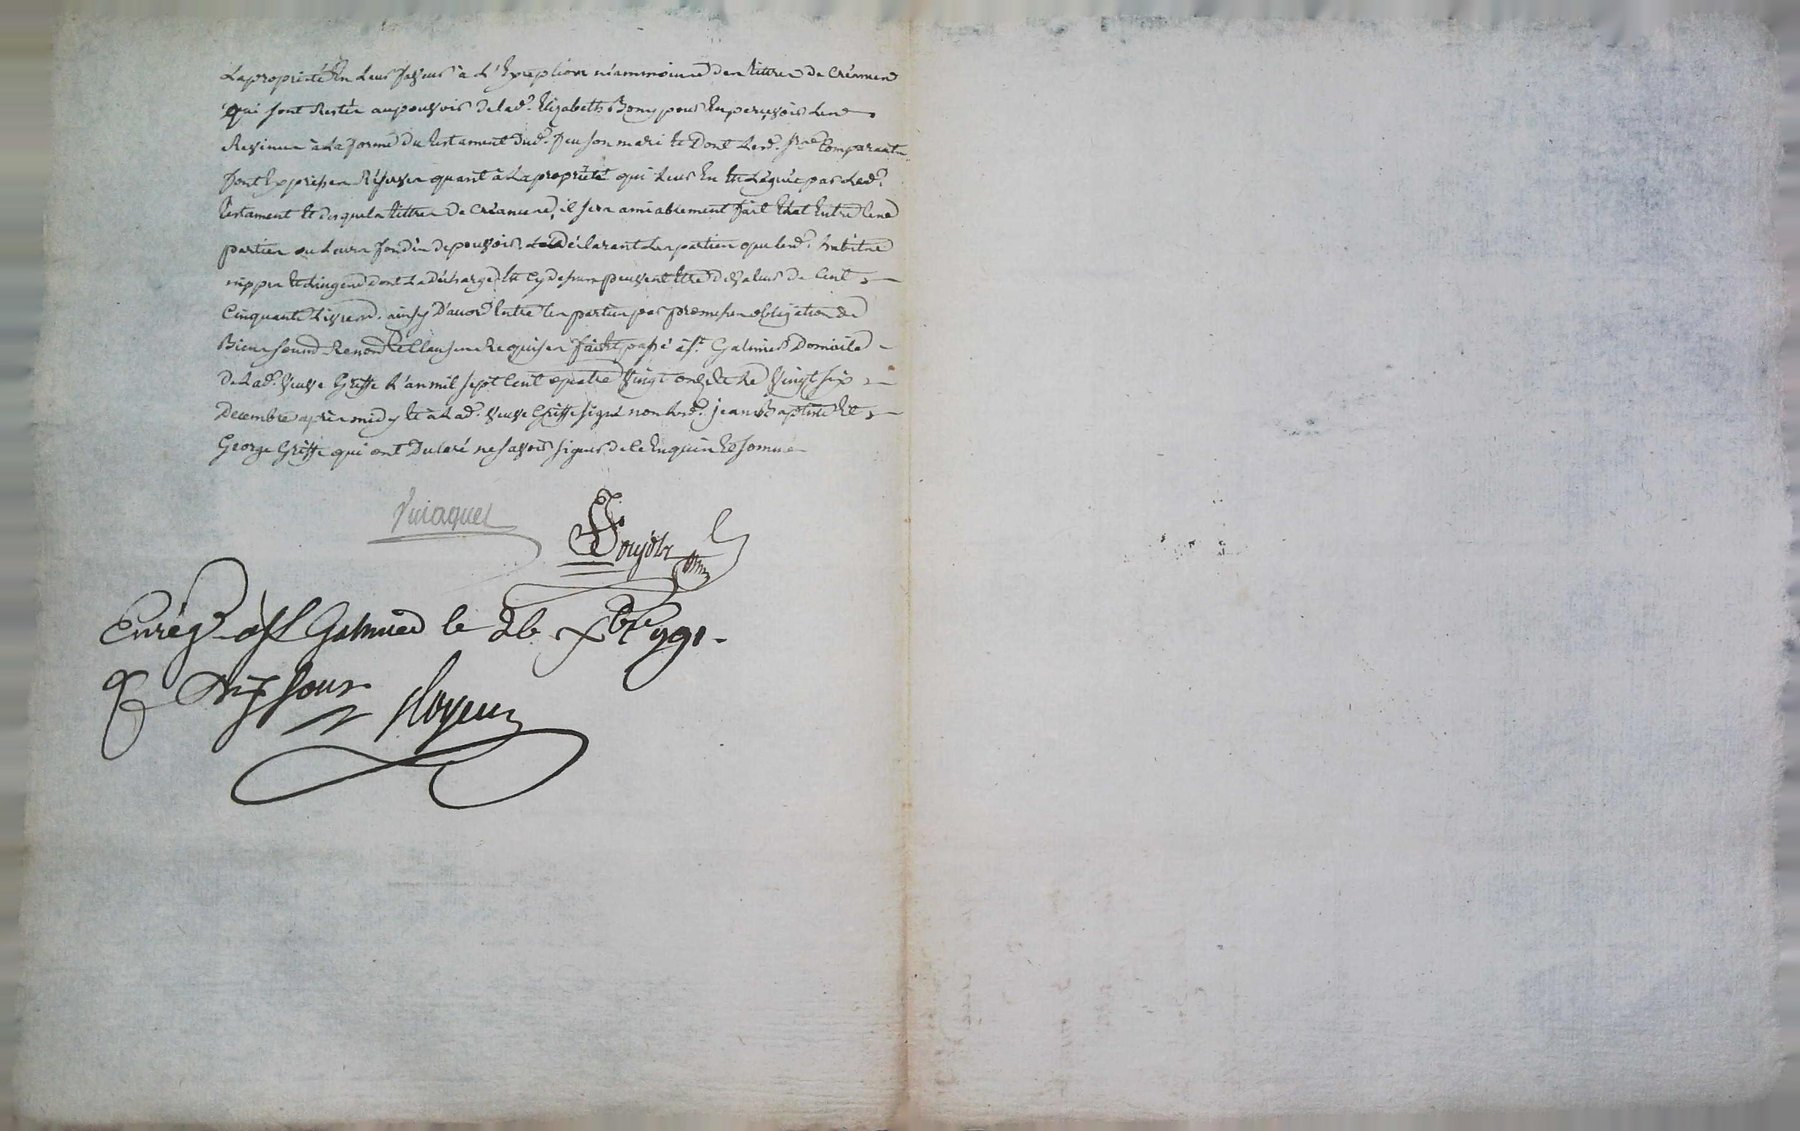 La proprieté En Leur faveur à L'Exception néammoins des tittres de Créances
qui sont Restés au pouvoir de lad.e Elizabeth Bony pour En percevoir Les
Revenus à La forme du testament dud. feu son mari Et Dont Lesd. frères Comparants
font Expresses Réserves quant à La propriété qui Leur En Est Léguée par Led.
testament Et desquels tittres de Créances, il sera amiablement fait Etat Entre Les
parties ou Leurs fondés de pouvoir, Déclarant Les parties que Lesd.
nippes Et Linges dont La décharge Est Cy dessus peuvent Etre de valeur de Cent
Cinquante Livres. ainsy D'accord Entre Les parties par promesses obligation de
Biens soumis Renon.s Et Clauses Requises fait Et passé à S.t Galmier Domicile
de Lad. veuve Griffe L'an mil sept Cent quatre vingt onze Et Le vingt six
Decembre après midy Et à Lad. veuve Griffe signé non Lesd. jean Baptiste Et
George Griffe qui ont Declaré ne savoir signer de ce Enquis Et sommés
Enrég.é à St Galmier le 26 Xbre 1791